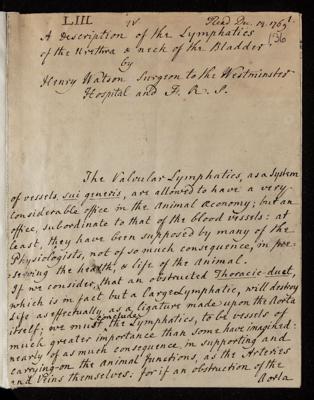 LIII. IV Read Dec. 14. 1769.
156
A Description of the Lymphatics
of the Urethra & neck of the Bladder,
by
Henry Watson Surgeon to the Westminster
Hospital and F. R. S.
The Valvular Lymphatics, as a System
of vessels, sui generis, are allowed to have a very
considerable office in the animal œconomy; but an
office, subordinate to that of the blood vessels: at
least, they have been supposed by many of the
Physiologists, not of so much consequence, in pre-
serving the health, & life of the animal.
If we consider, that an obstructed Thoracic duct,
which is in fact but a large Lymphatic, will destroy
life as effectually, as a ligature made upon the Aorta
itself; we must conclude the Lymphatics, to be vessels of
much greater importance than some have imagined:
nearly of as much consequence, in supporting and
carrying-on the animal functions, as the Arteries
and Veins themselves: for if an obstruction of the
Aorta